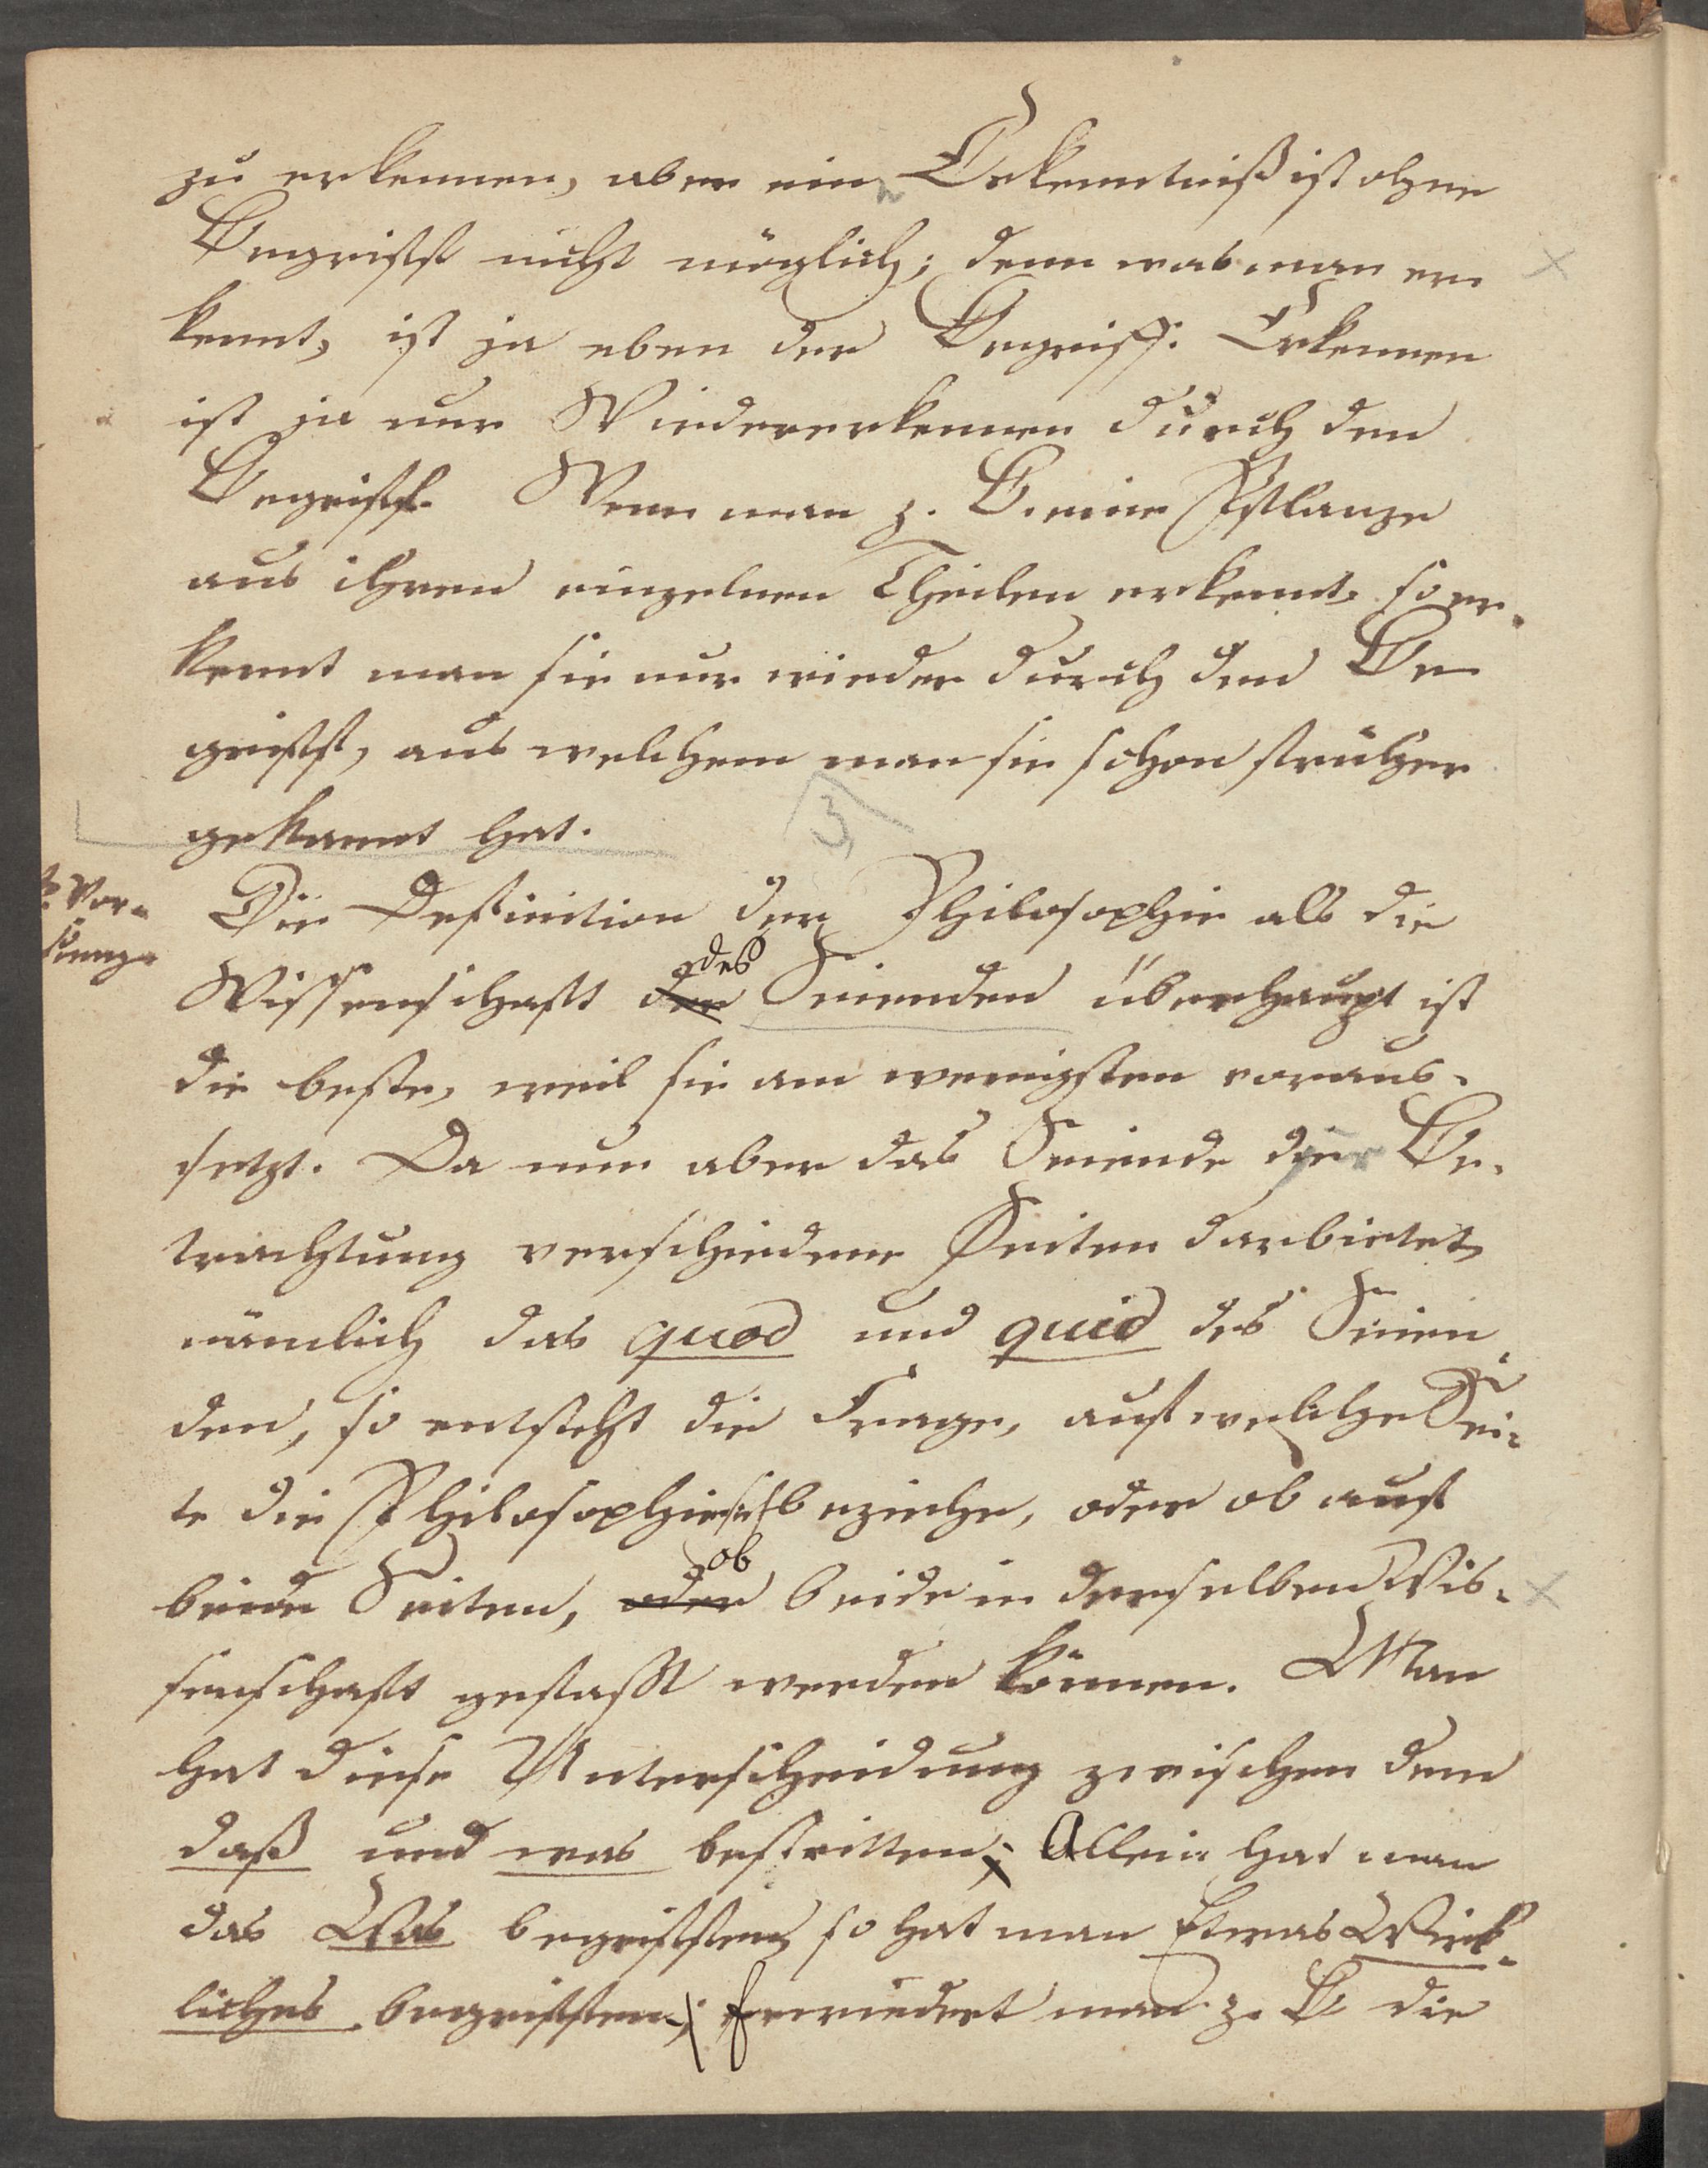 zu erkennen, aber ein Erkenntniß ist ohne
Begriff nicht möglich; denn was man er-
kennt, ist ja eben der Begriff. Erkennen
ist ja nur Wiedererkennen durch den
Begriff. Wenn man z. B. eine Pflanze
aus ihren einzelnen Theilen erkennt, so er-
kennt man sie nur wieder durch den Be-
griff, aus welchem man sie schon früher
gekannt hat.
3
Vor-
Die Definition der Philosophie als die
des
Wissenschaft der Seienden überhaupt ist
die beste, weil sie am wenigsten voraus-
setzt. Da nun aber das Seiende der Be-
trachtung verschiedene Seiten darbietet,
nämlich das quod und quid des Seien-
den, so entsteht die Frage, auf welche Sei-
te die Philosophie sich beziehe, oder ob auf
ob
beide Seiten, oder beide in derselben Wis-
senschaft gefaßt werden können. Man
hat diese Unterscheidung zwischen dem
daß und was bestritten; Allein hat man
das Was begriffen, so hat man Etwas Wirk-
liches begriffen; erwiedert man z. B. die